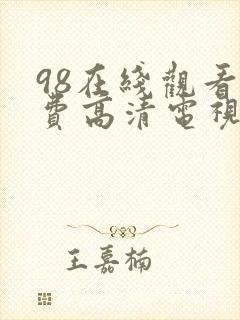 98在綫觀看
費高清電視
王嘉楠